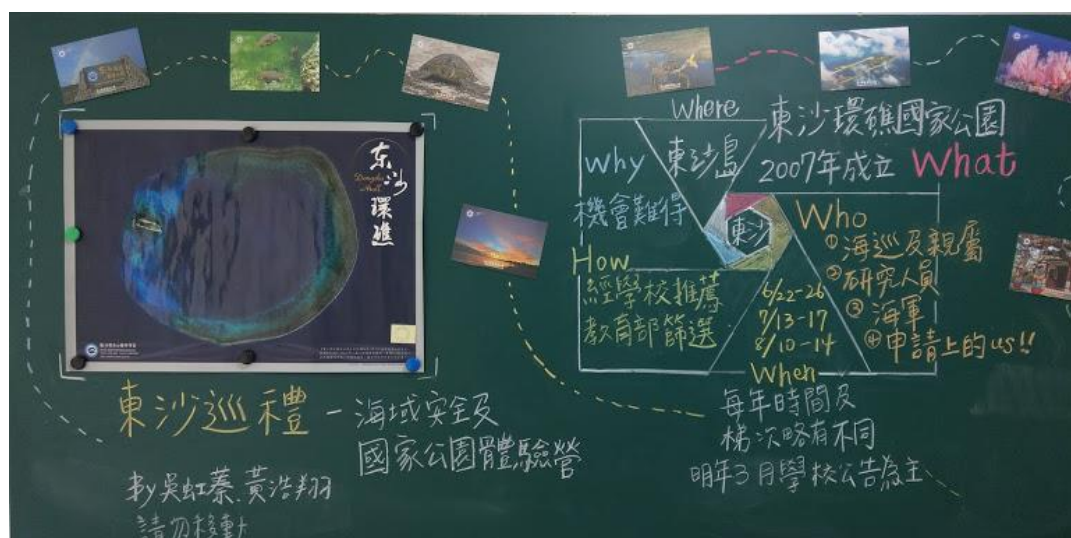 东沙環礁
Dongsha
Atoll
東沙巡禮 - 海域安全及
國家公園體驗營
by吳虹蓁.黃浩翔
請勿移動
Where
東沙島
東沙環礁國家公園
2007年成立 What
Why
機會難得
東沙
Who
①海巡及親屬
②研究人員
③海軍
④申請上的us!!
How
經學校推薦
教育部篩選
6/22-26
7/13-17
8/10-14
When
每年時間及
梯次略有不同
明年3月學校公告為主